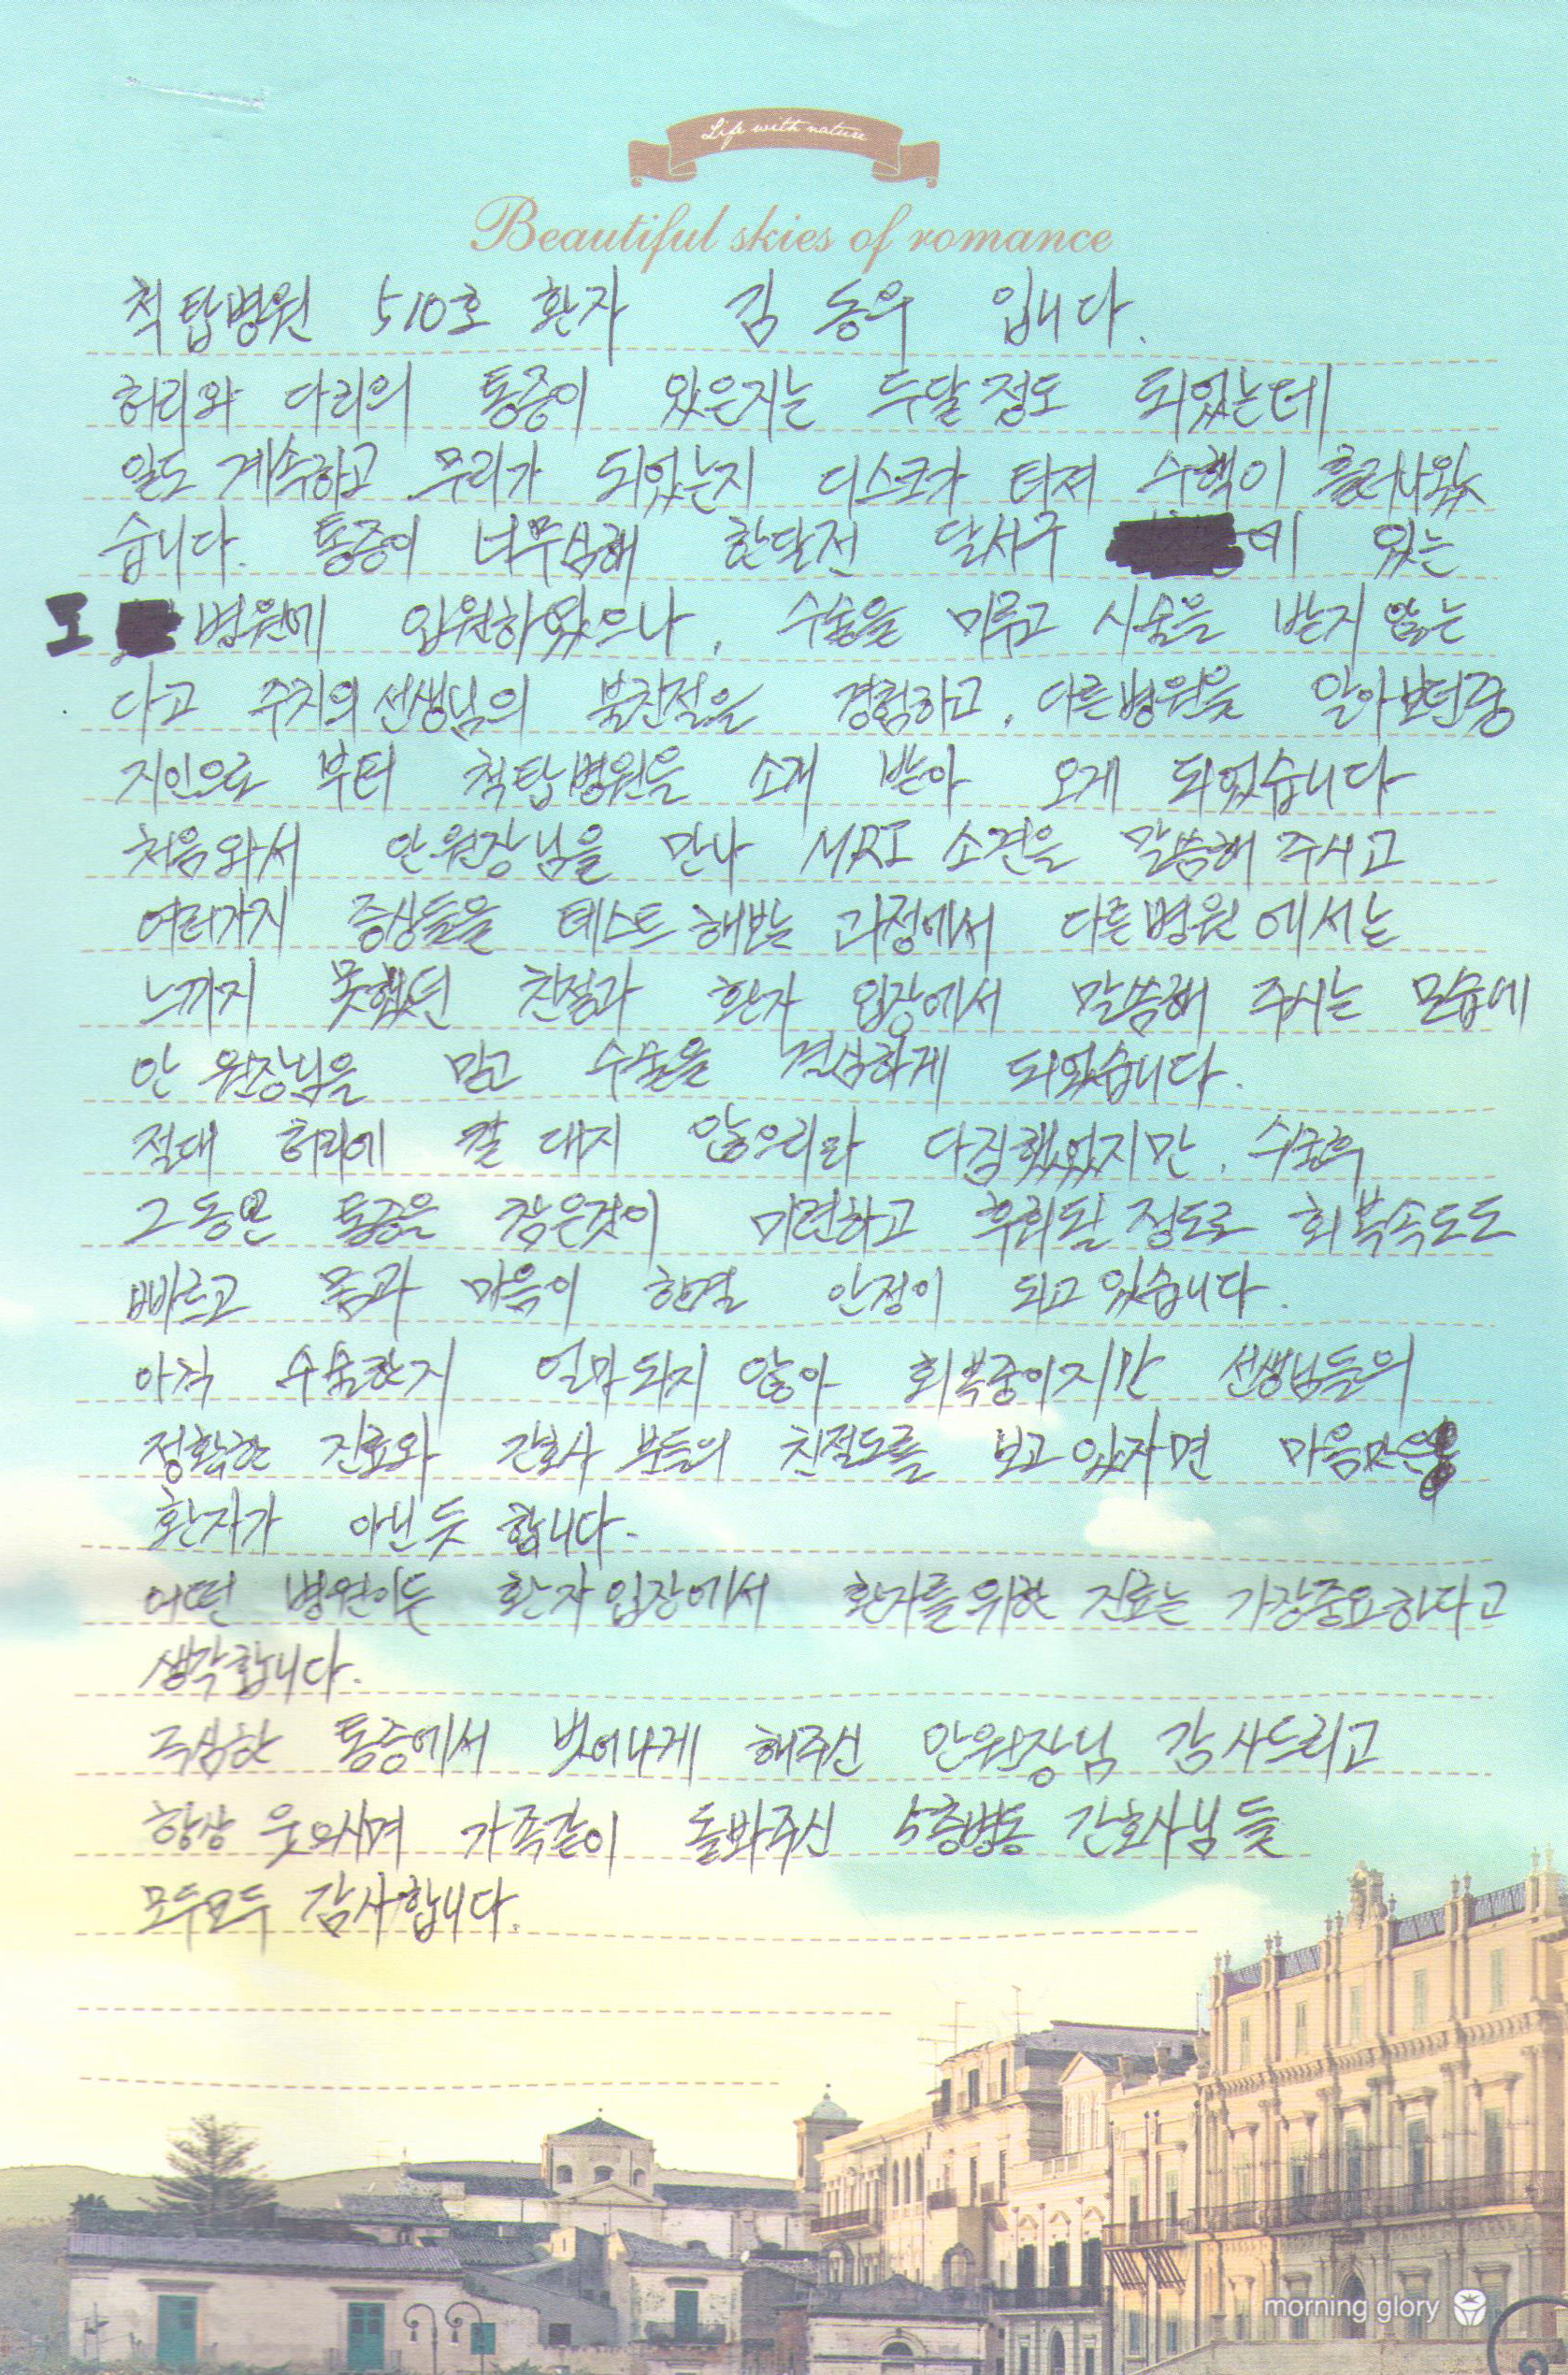 Life with nature
Beautiful skies of romance
척탑병원 510호 환자 김 동우 입니다.
허리와 다리의 통증이 있은지는 두달 정도 되었는데
일도 계속하고 무리가 되었는지 디스크가 터져 수핵이 흘러나왔
습니다. 통증이 너무심해 한달전 달서구 에 있는
모 병원에 입원하였으나, 수술을 미루고 시술을 받지 않는
다고 주치의 선생님의 불친절을 경험하고, 다른병원을 알아보던중
지인으로 부터 척탑병원을 소개 받아 오게 되었습니다
처음와서 안원장님을 만나 MRI 소견을 말씀해 주시고
여러가지 증상들을 테스트 해보는 과정에서 다른병원 에서는
느끼지 못했던 친절과 환자 입장에서 말씀해 주시는 모습에
안 원장님을 믿고 수술을 결심하게 되었습니다.
절대 허리에 칼 대지 않으리라 다짐했었지만, 수술후
그동안 통증을 참은것이 미련하고 후회될 정도로 회복속도도
빠르고 몸과 마음이 한결 안정이 되고 있습니다.
아직 수술한지 얼마되지 않아 회복중이지만 선생님들의
정확한 진료와 간호사 분들의 친절도를 보고 있자면 마음만은
환자가 아닌듯 합니다.
어떤 병원이든 환자 입장에서 환자를 위한 진료는 가장중요하다고
생각합니다.
극심한 통증에서 벗어나게 해주신 안원장님 감사드리고
항상 웃으시며 가족같이 돌봐주신 5층병동 간호사님 들
모두모두 감사합니다.
morning glory